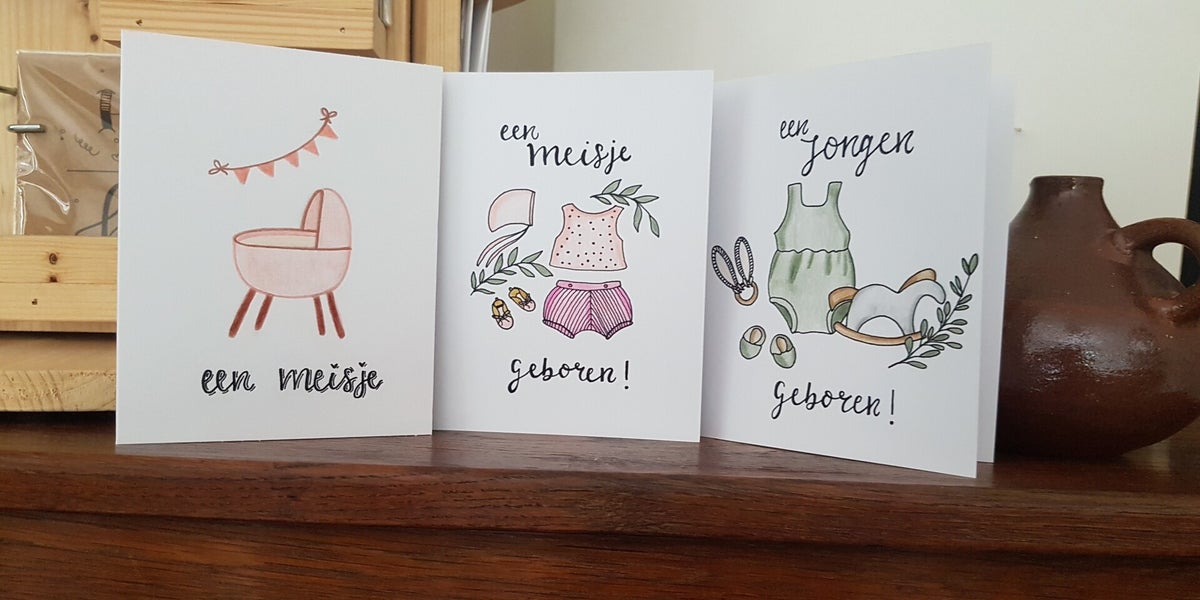 een meisje
een
meisje
geboren!
een
jongen
geboren!